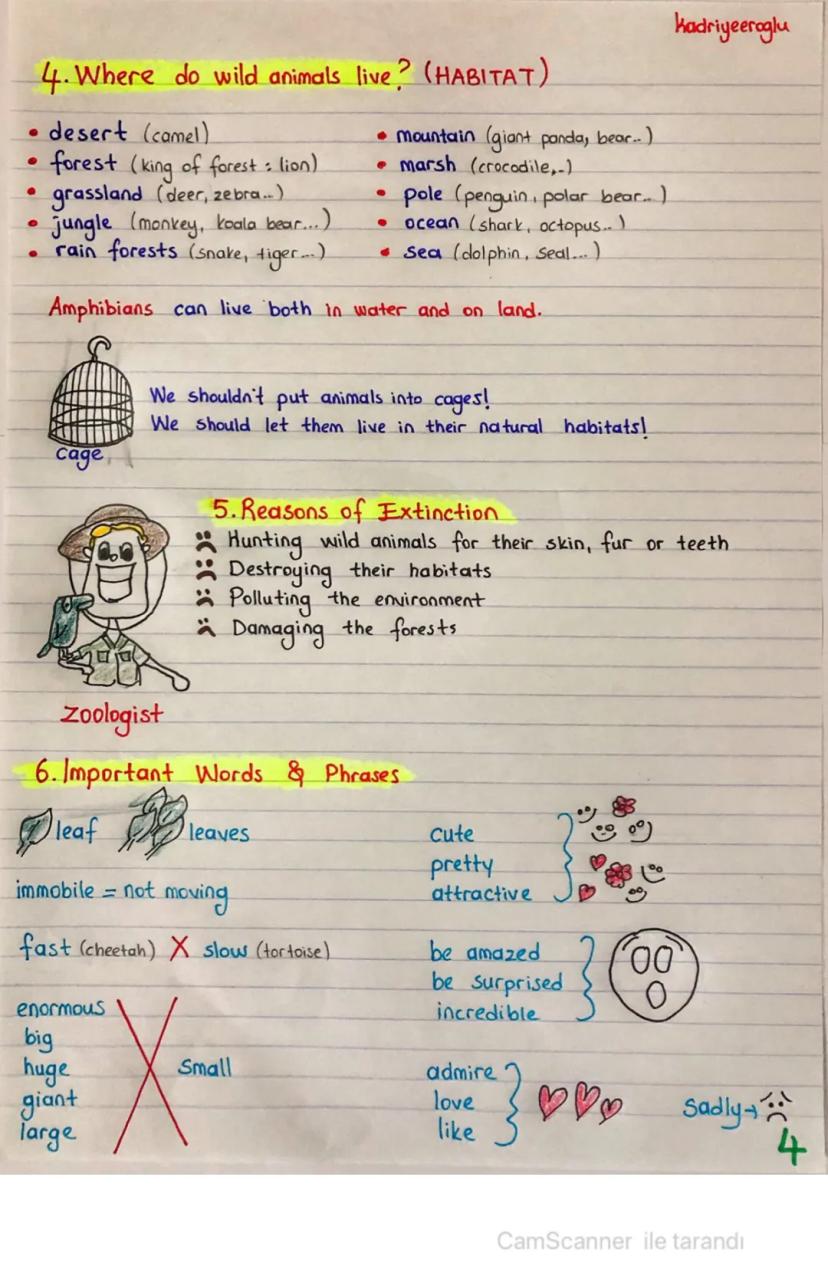 kadriyeeroglu
4. Where do wild animals live? (HABITAT)
• desert (camel)
• forest (king of forest : lion)
• grassland (deer, zebra..)
• jungle (monkey, koala bear...)
• rain forests (snake, tiger...)
• mountain (giant panda, bear..)
• marsh (crocodile,..)
• pole (penguin, polar bear..)
• ocean (shark, octopus..)
• sea (dolphin, seal...)
Amphibians can live both in water and on land.
We shouldn't put animals into cages!
We should let them live in their natural habitats!
cage
5. Reasons of Extinction
Hunting wild animals for their skin, fur or teeth
Destroying their habitats
Polluting the environment
Damaging the forests
Zoologist
6. Important Words & Phrases
leaf leaves
immobile = not moving
fast (cheetah) X slow (tortoise)
enormous
big
huge
giant
large
X small
cute
pretty
attractive
be amazed
be surprised
incredible
admire
love
like
Sadly→
4
CamScanner ile tarandı